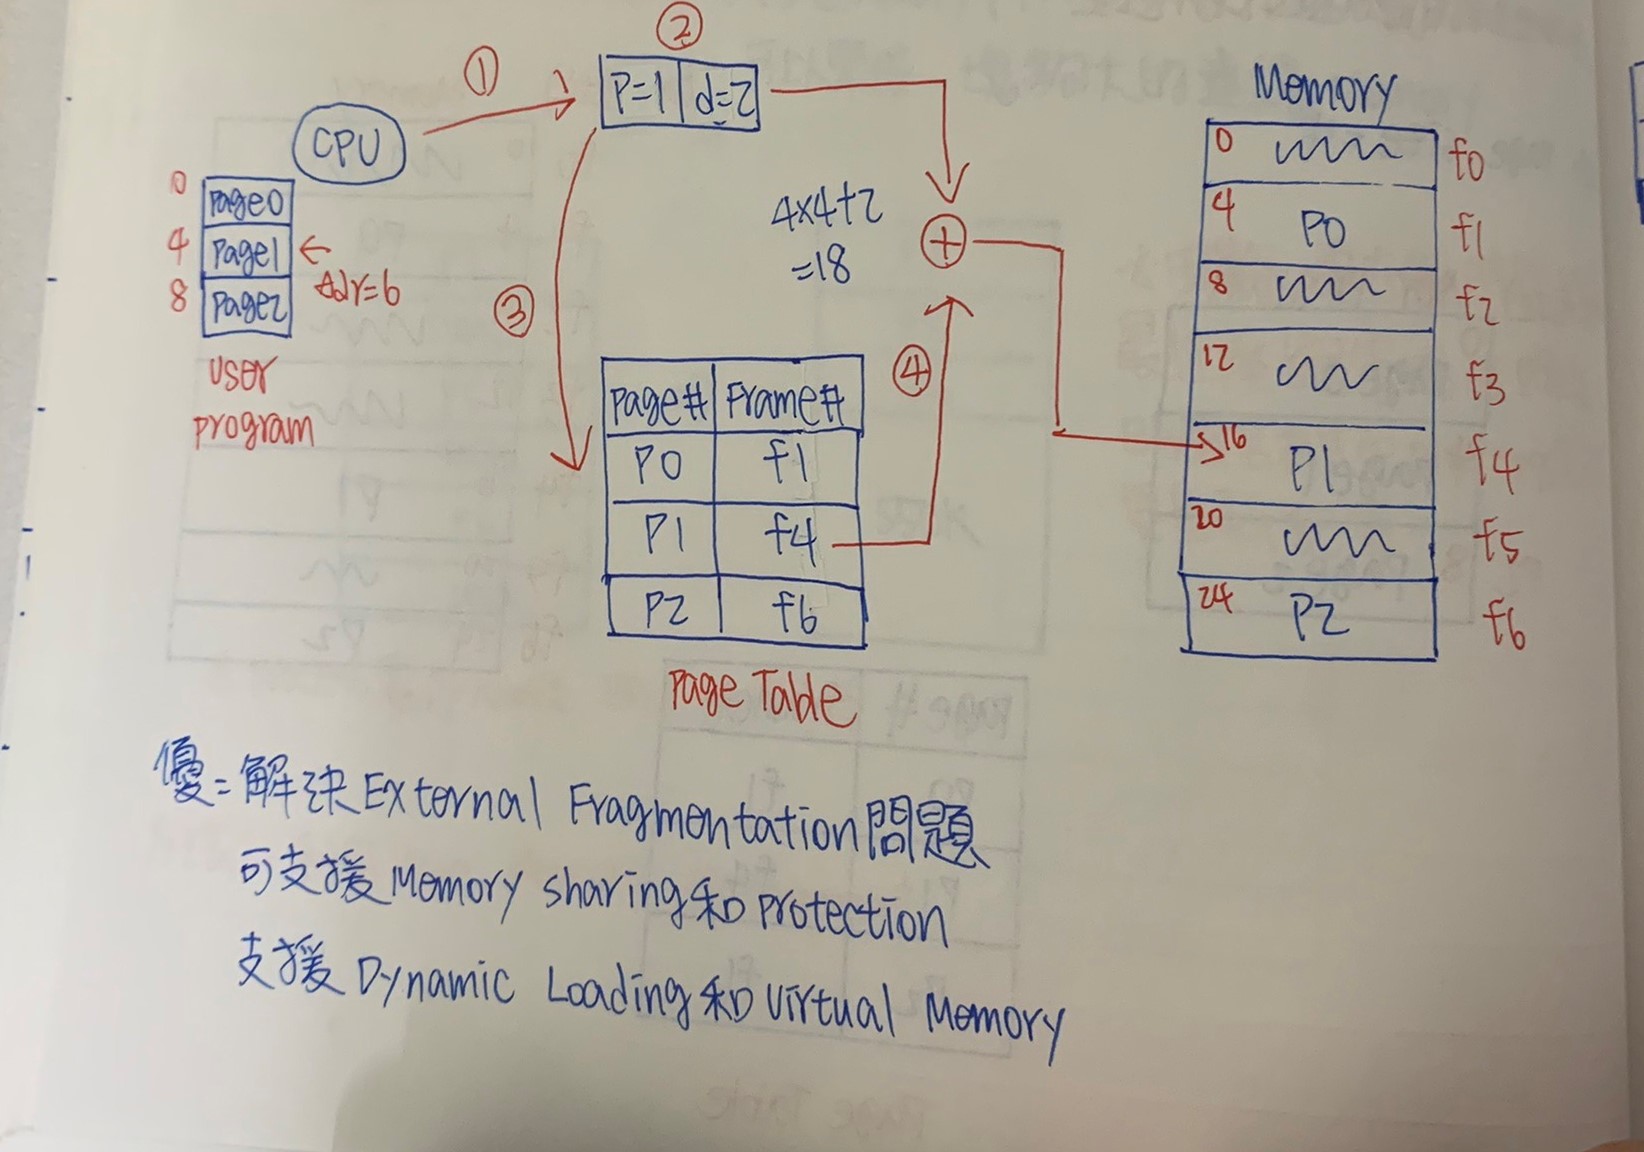 ①
②
P=1 d=2
CPU
0 Page0
4 Page1 ←
8 Page2
Adr=6
user
program
③
4×4+2
=18
+
④
Page# Frame#
P0 f1
P1 f4
P2 f6
Page Table
Memory
0 f0
4 P0 f1
8 f2
12 f3
16 P1 f4
20 f5
24 P2 f6
優=解決External Fragmentation問題
可支援Memory sharing和protection
支援Dynamic Loading和Virtual Memory